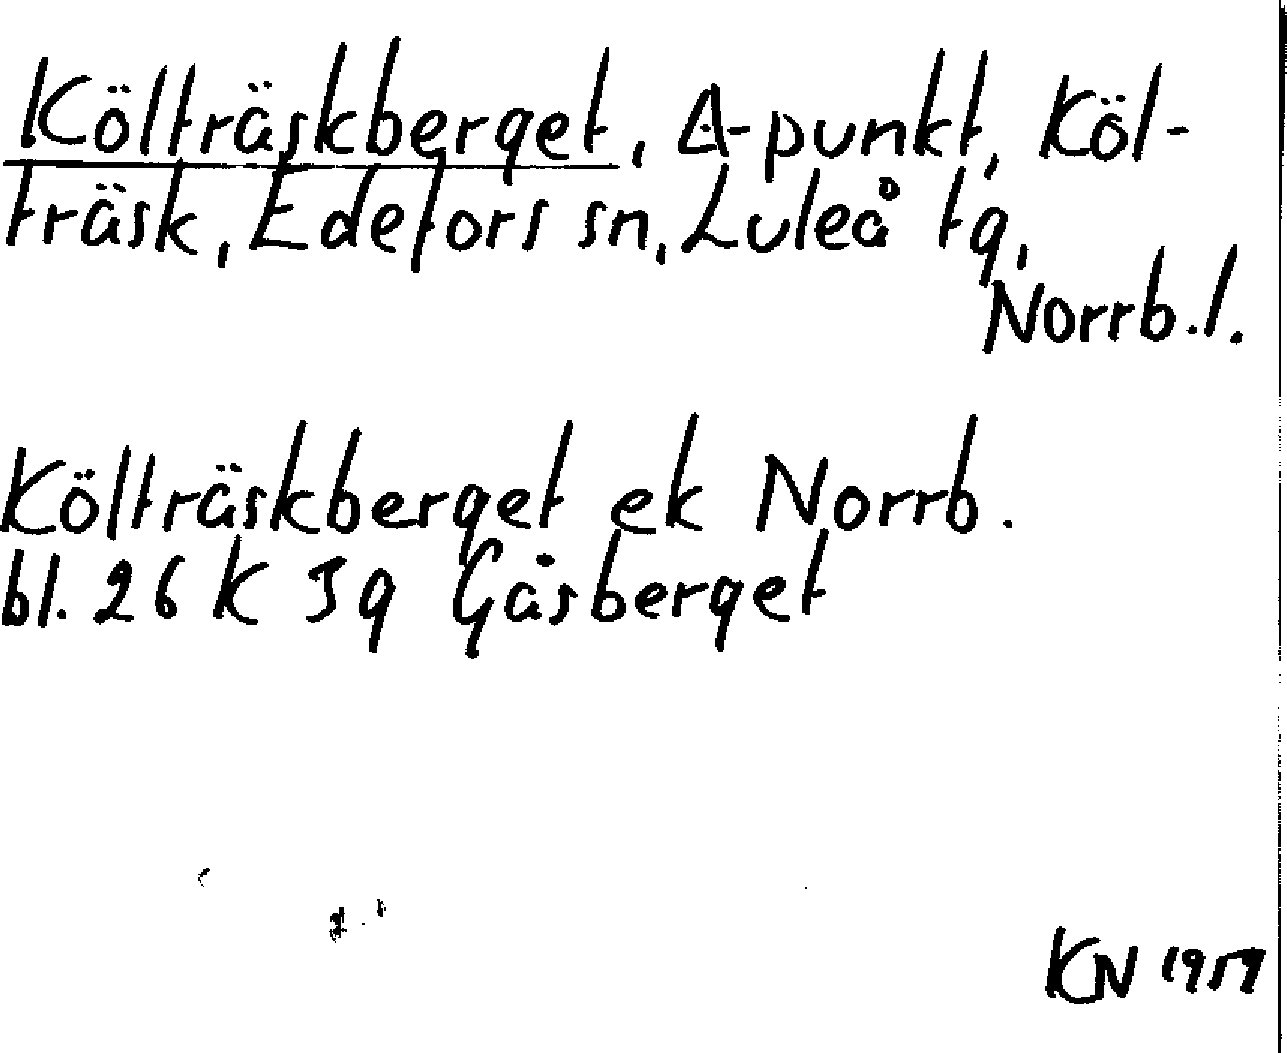 Költräskberget, Δ-punkt, Köl-
träsk, Edefors sn, Luleå tg,
Norrb. l.
Költräskberget ek Norrb.
bl. 26 K 3g Gåsberget
KN 1957